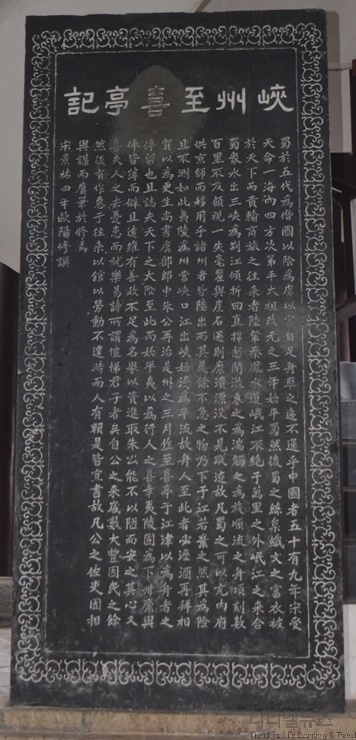 峽州至喜亭記
蜀於五代為僭國以險為虞以富自足舟車之迹不通乎中國者五十有九年宋受
天命一海內四方次第平太祖改元之三年始平蜀然後蜀之絲枲織文之富衣被
於天下而貢輸商旅之往來者陸輦秦鳳水道岷江不絕于萬里之外岷江之來合
蜀眾水出三峽為荊江傾折回直捍怒鬥激束之為湍觸之為旋順流之舟頃刻數
百里不及顧視一失毫釐與崖石遇則糜潰漂沒不見蹤迹故凡蜀之可以充內府
供京師而移用乎諸州者皆陸出而其羨餘不急之物乃下于江若棄之然其為險
且不測如此夷陵為州當峽口江出峽始漫為平流故舟人至此者必瀝酒再拜相
賀以為更生尚書虞部郎中朱公再治是州之三月作至喜亭于江津以為舟者之
停留也且誌夫天下之大險至此而始平夷以為行人之喜幸夷陵固為下州廩與
俸皆薄而僻且遠雖有善政不足為名譽以資進取朱公能不以陋而安之其心又
喜夫人之去憂患而就樂易詩所謂愷悌君子者矣自公之來歲數大豐因民之餘
然後有作惠于往來以館以勞動不違時而人有賴是皆宜書故凡公之佐吏因相
與謀而屬筆於修焉
宋景祐四年歐陽修撰
Trend to Life Economy & Travel